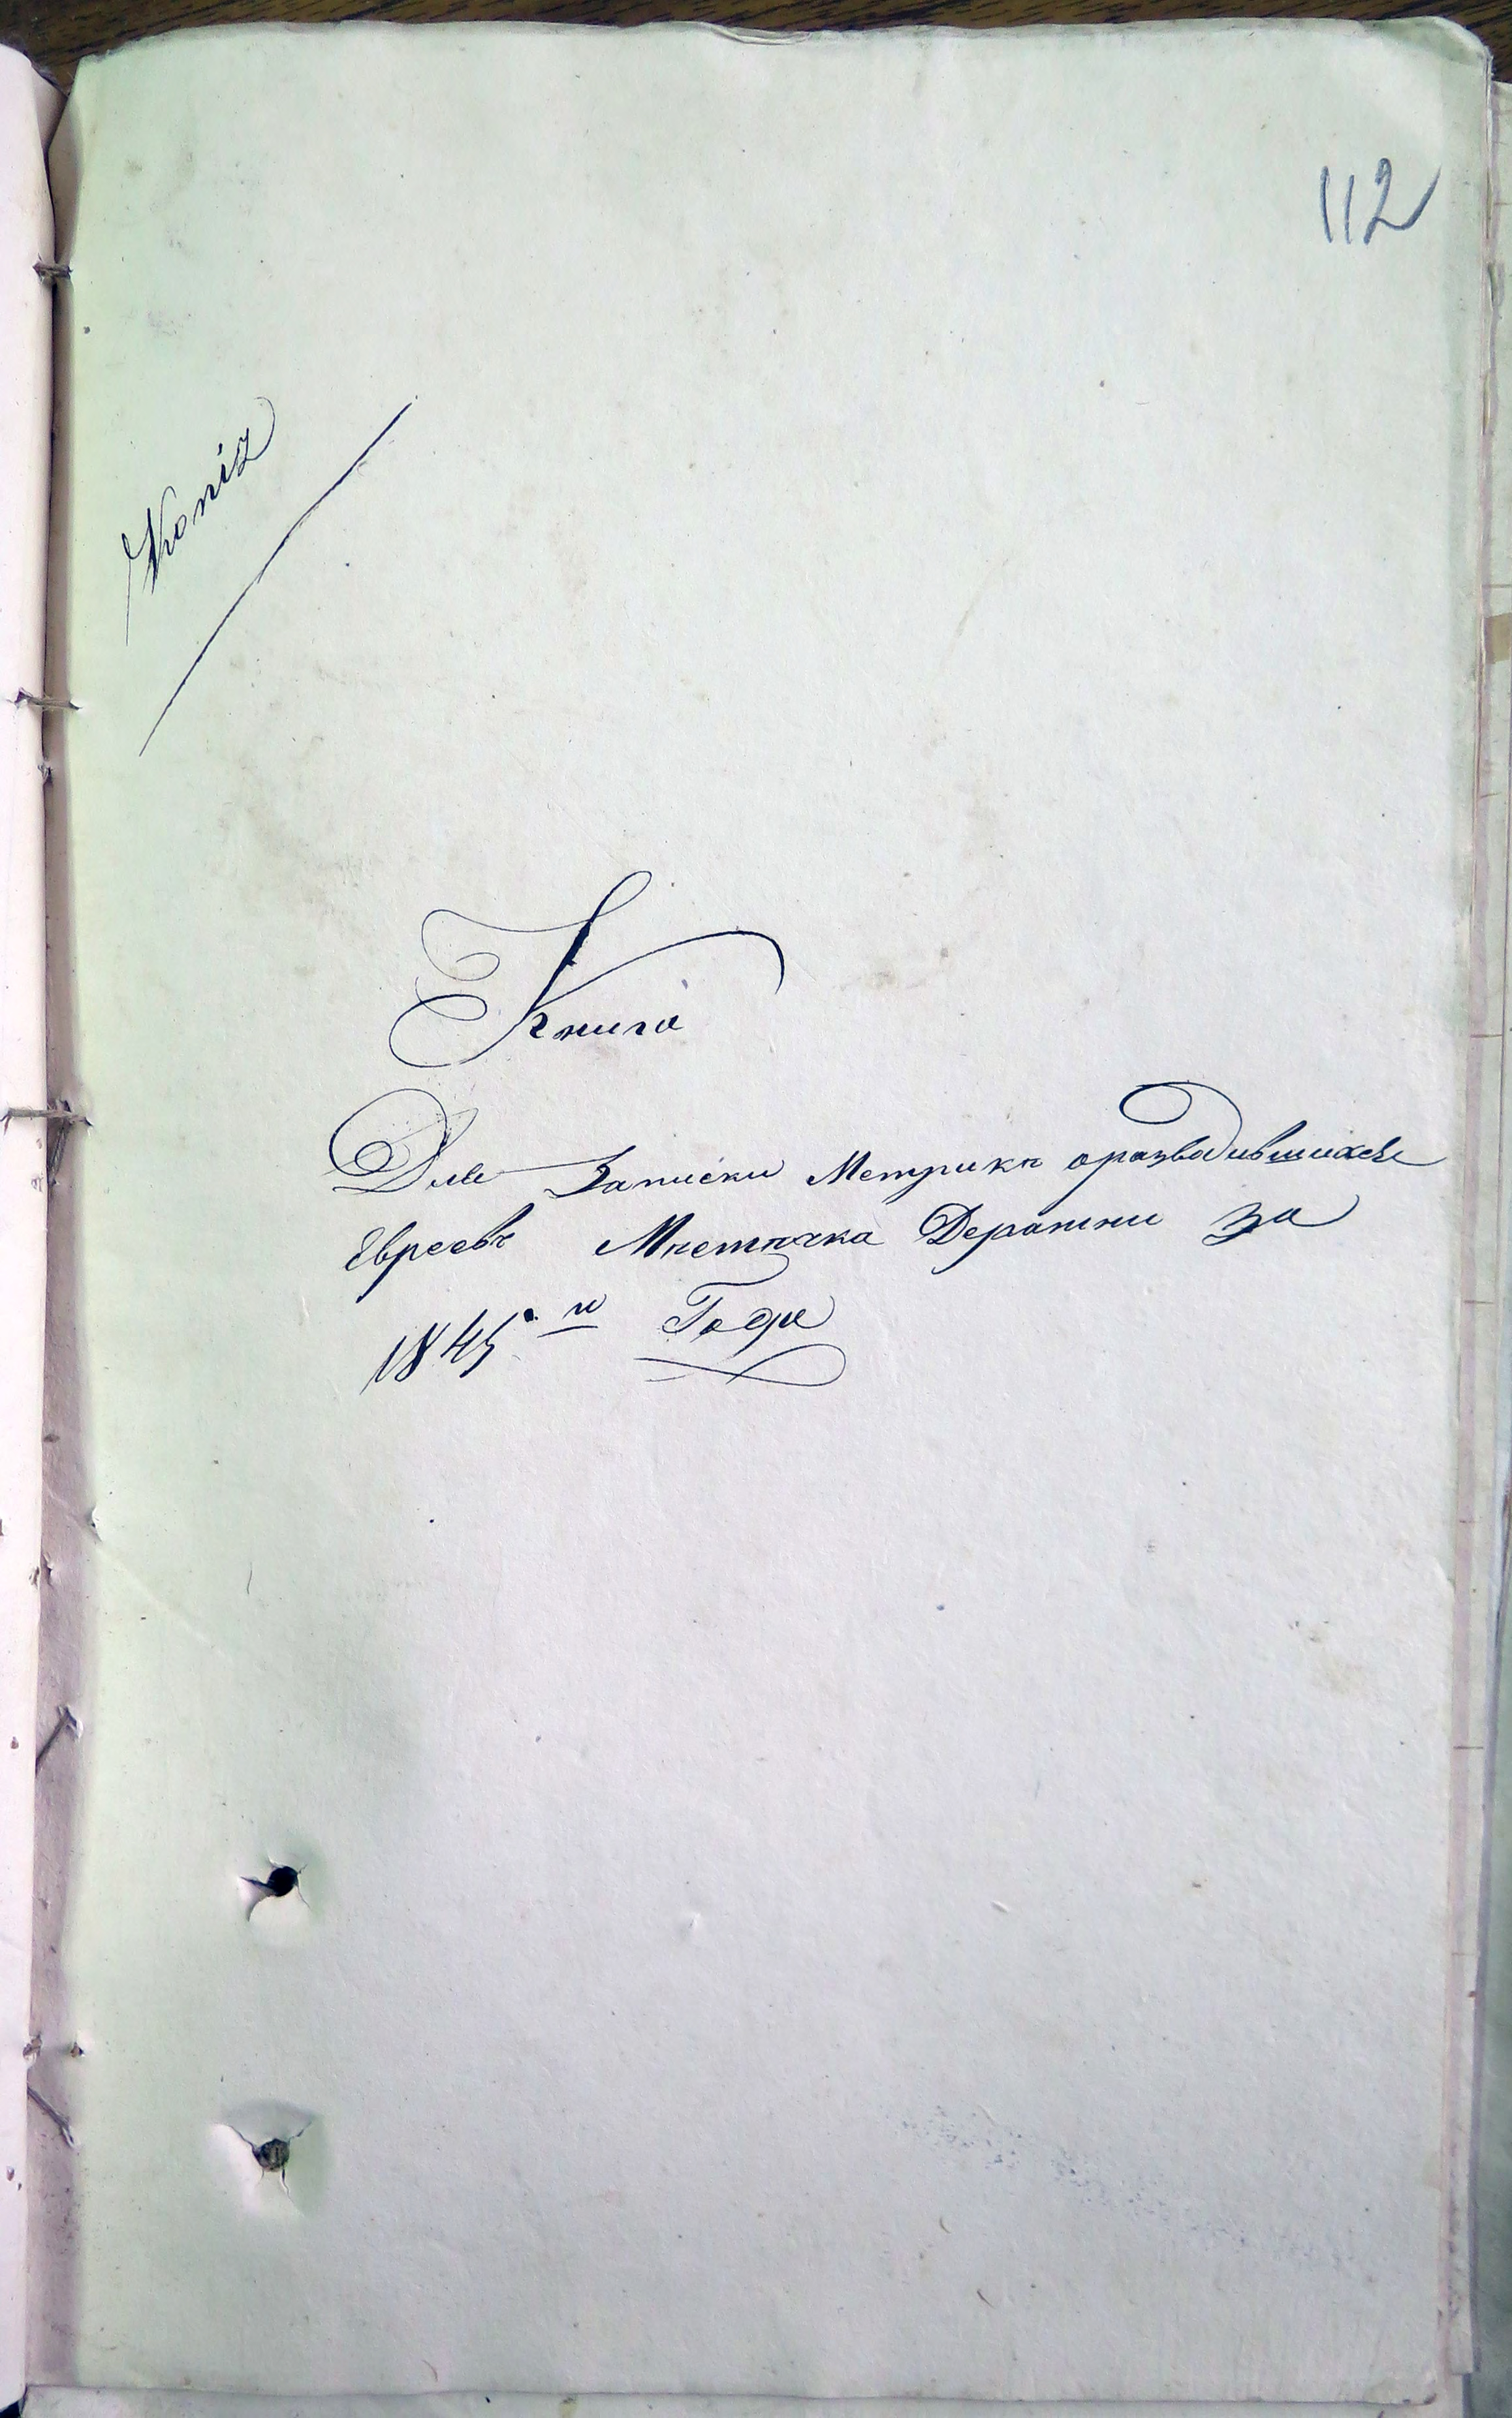 112
Копія
Книга
Для Записки Метрикъ оразводившихся
Евреевъ Мѣстѣчка Деражни за
1845.й Годъ